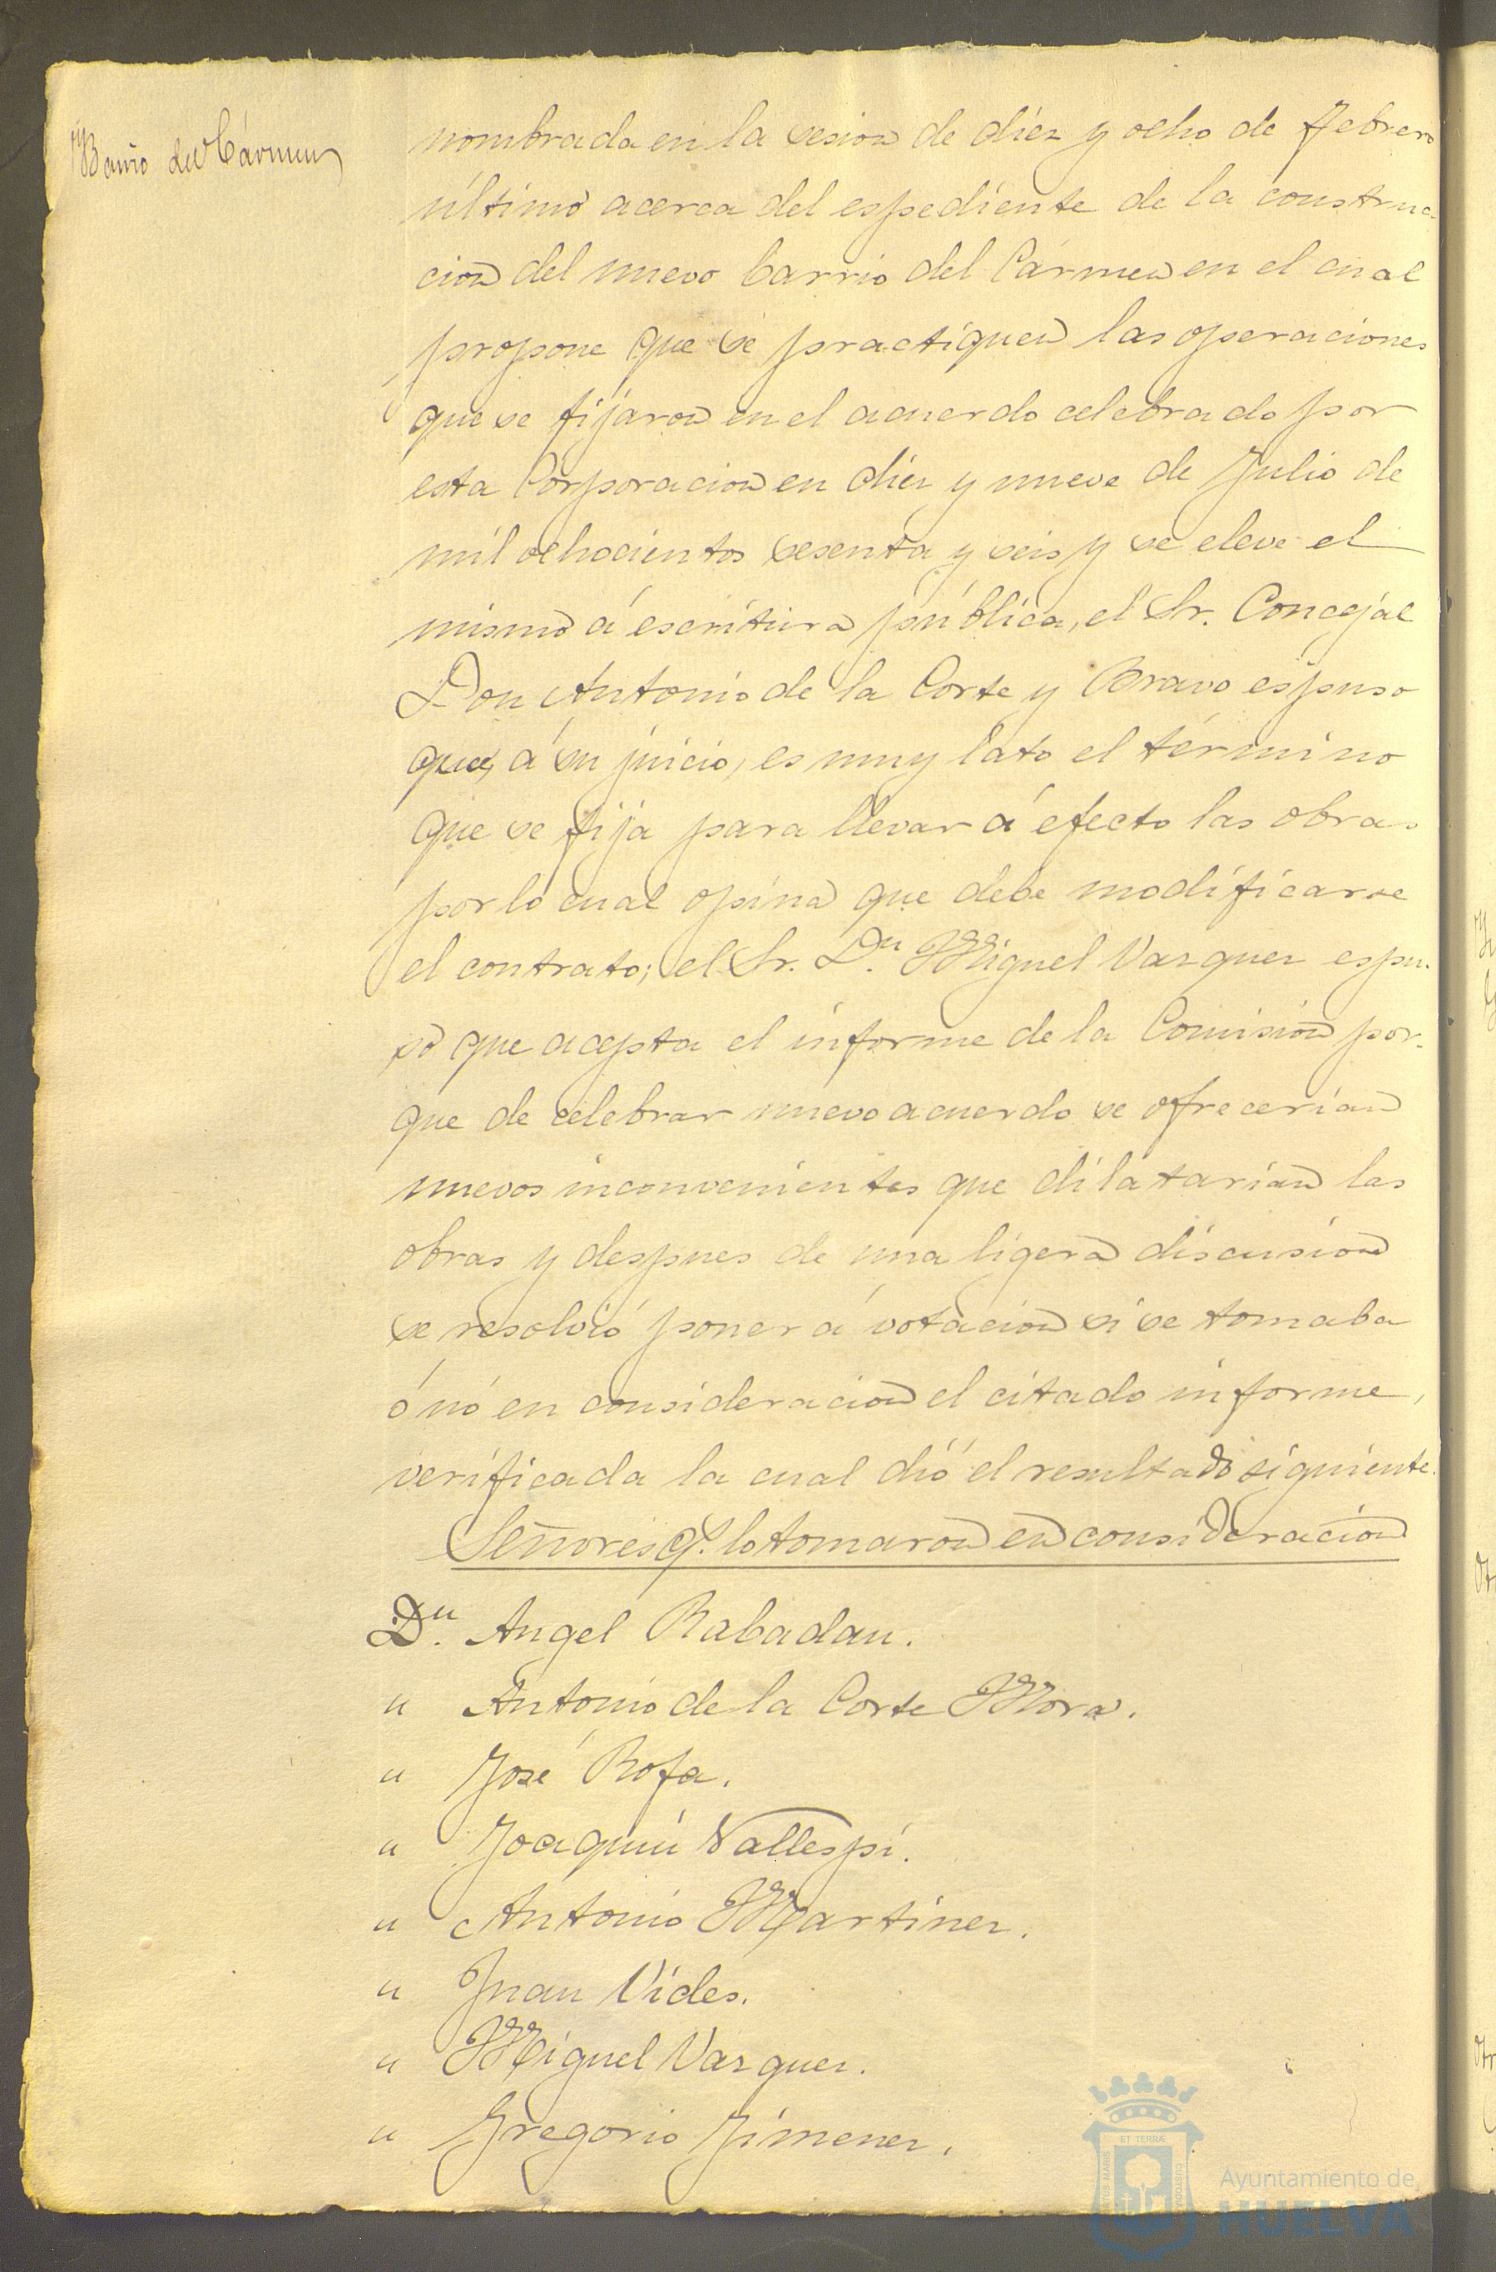 Barrio del Cármen
nombrada en la sesion de diez y ocho de Febrero
último acerca del espediente de la construc-
cion del nuevo barrio del Cármen en el cual
propone que se practiquen las operaciones
que se fijaron en el acuerdo celebrado por
esta Corporacion en diez y nueve de Julio de
mil ochocientos sesenta y seis y se eleve el
mismo á escritura pública, el Sr. Concejal
Don Antonio de la Corte y Bravo espuso
que, á su juicio, es muy lato el término
que se fija para llevar á efecto las obras
por lo cual opina que debe modificarse
el contrato; el Sr. Dn. Miguel Vazquez espu-
so que acepta el informe de la Comision por-
que de celebrar nuevo acuerdo se ofrecerian
nuevos inconvenientes que dilatarian las
obras y despues de una ligera discusion
se resolvió poner á votacion si se tomaba
ó nó en consideracion el citado informe,
verificada la cual dió el resultado siguiente.
Señores q. lo tomaron en consideracion
Dn. Angel Rabadan.
" Antonio de la Corte Mora.
" José Rofa.
" Joaquin Vallespi.
" Antonio Martinez.
" Juan Vides.
" Miguel Vazquez.
" Gregorio Jimenez.
ET TERRÆ
Ayuntamiento de
HUELVA